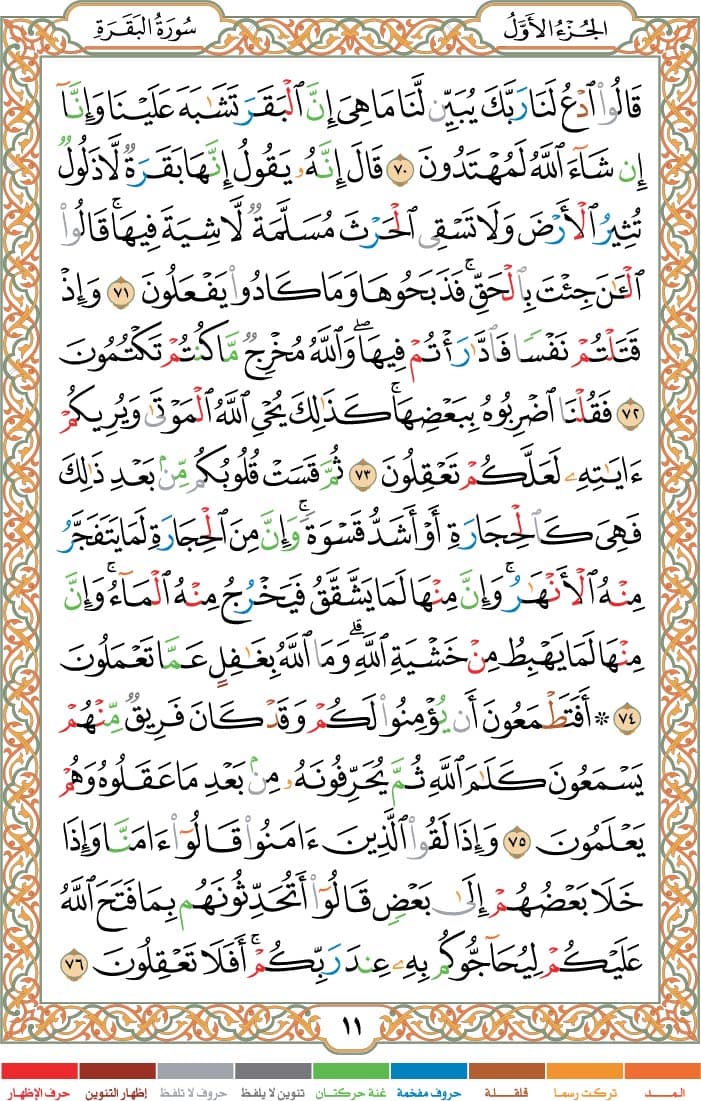 الجُزْءُ الأَوَّلُ
سُورَةُ البَقَرَةِ
قَالُوا۟ ٱدْعُ لَنَا رَبَّكَ يُبَيِّن لَّنَا مَا هِىَ إِنَّ ٱلْبَقَرَ تَشَـٰبَهَ عَلَيْنَا وَإِنَّآ
إِن شَآءَ ٱللَّهُ لَمُهْتَدُونَ ٧٠ قَالَ إِنَّهُۥ يَقُولُ إِنَّهَا بَقَرَةٌ لَّا ذَلُولٌ
تُثِيرُ ٱلْأَرْضَ وَلَا تَسْقِى ٱلْحَرْثَ مُسَلَّمَةٌ لَّا شِيَةَ فِيهَا ۚ قَالُوا۟
ٱلْـَٔـٰنَ جِئْتَ بِٱلْحَقِّ ۚ فَذَبَحُوهَا وَمَا كَادُوا۟ يَفْعَلُونَ ٧١ وَإِذْ
قَتَلْتُمْ نَفْسًا فَٱدَّٰرَْٰٔتُمْ فِيهَا ۖ وَٱللَّهُ مُخْرِجٌ مَّا كُنتُمْ تَكْتُمُونَ
٧٢ فَقُلْنَا ٱضْرِبُوهُ بِبَعْضِهَا ۚ كَذَٰلِكَ يُحْىِ ٱللَّهُ ٱلْمَوْتَىٰ وَيُرِيكُمْ
ءَايَـٰتِهِۦ لَعَلَّكُمْ تَعْقِلُونَ ٧٣ ثُمَّ قَسَتْ قُلُوبُكُم مِّنۢ بَعْدِ ذَٰلِكَ
فَهِىَ كَٱلْحِجَارَةِ أَوْ أَشَدُّ قَسْوَةً ۚ وَإِنَّ مِنَ ٱلْحِجَارَةِ لَمَا يَتَفَجَّرُ
مِنْهُ ٱلْأَنْهَـٰرُ ۚ وَإِنَّ مِنْهَا لَمَا يَشَّقَّقُ فَيَخْرُجُ مِنْهُ ٱلْمَآءُ ۚ وَإِنَّ
مِنْهَا لَمَا يَهْبِطُ مِنْ خَشْيَةِ ٱللَّهِ ۗ وَمَا ٱللَّهُ بِغَـٰفِلٍ عَمَّا تَعْمَلُونَ
٧٤ ۞ أَفَتَطْمَعُونَ أَن يُؤْمِنُوا۟ لَكُمْ وَقَدْ كَانَ فَرِيقٌ مِّنْهُمْ
يَسْمَعُونَ كَلَـٰمَ ٱللَّهِ ثُمَّ يُحَرِّفُونَهُۥ مِنۢ بَعْدِ مَا عَقَلُوهُ وَهُمْ
يَعْلَمُونَ ٧٥ وَإِذَا لَقُوا۟ ٱلَّذِينَ ءَامَنُوا۟ قَالُوٓا۟ ءَامَنَّا وَإِذَا
خَلَا بَعْضُهُمْ إِلَىٰ بَعْضٍ قَالُوٓا۟ أَتُحَدِّثُونَهُم بِمَا فَتَحَ ٱللَّهُ
عَلَيْكُمْ لِيُحَآجُّوكُم بِهِۦ عِندَ رَبِّكُمْ ۚ أَفَلَا تَعْقِلُونَ ٧٦
١١
المــد
تركت رسما
قلقـلة
حروف مفخمة
غنة حركتـان
تنوين لا يلفظ
حروف لا تلفظ
إظهار التنوين
حرف الإظهار